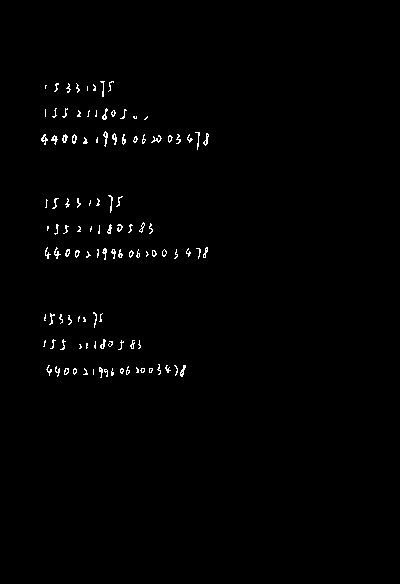 15331275
155211805
440021996062003478
15331275
15521180583
440021996062003478
15331275
15521180583
440021996062003478